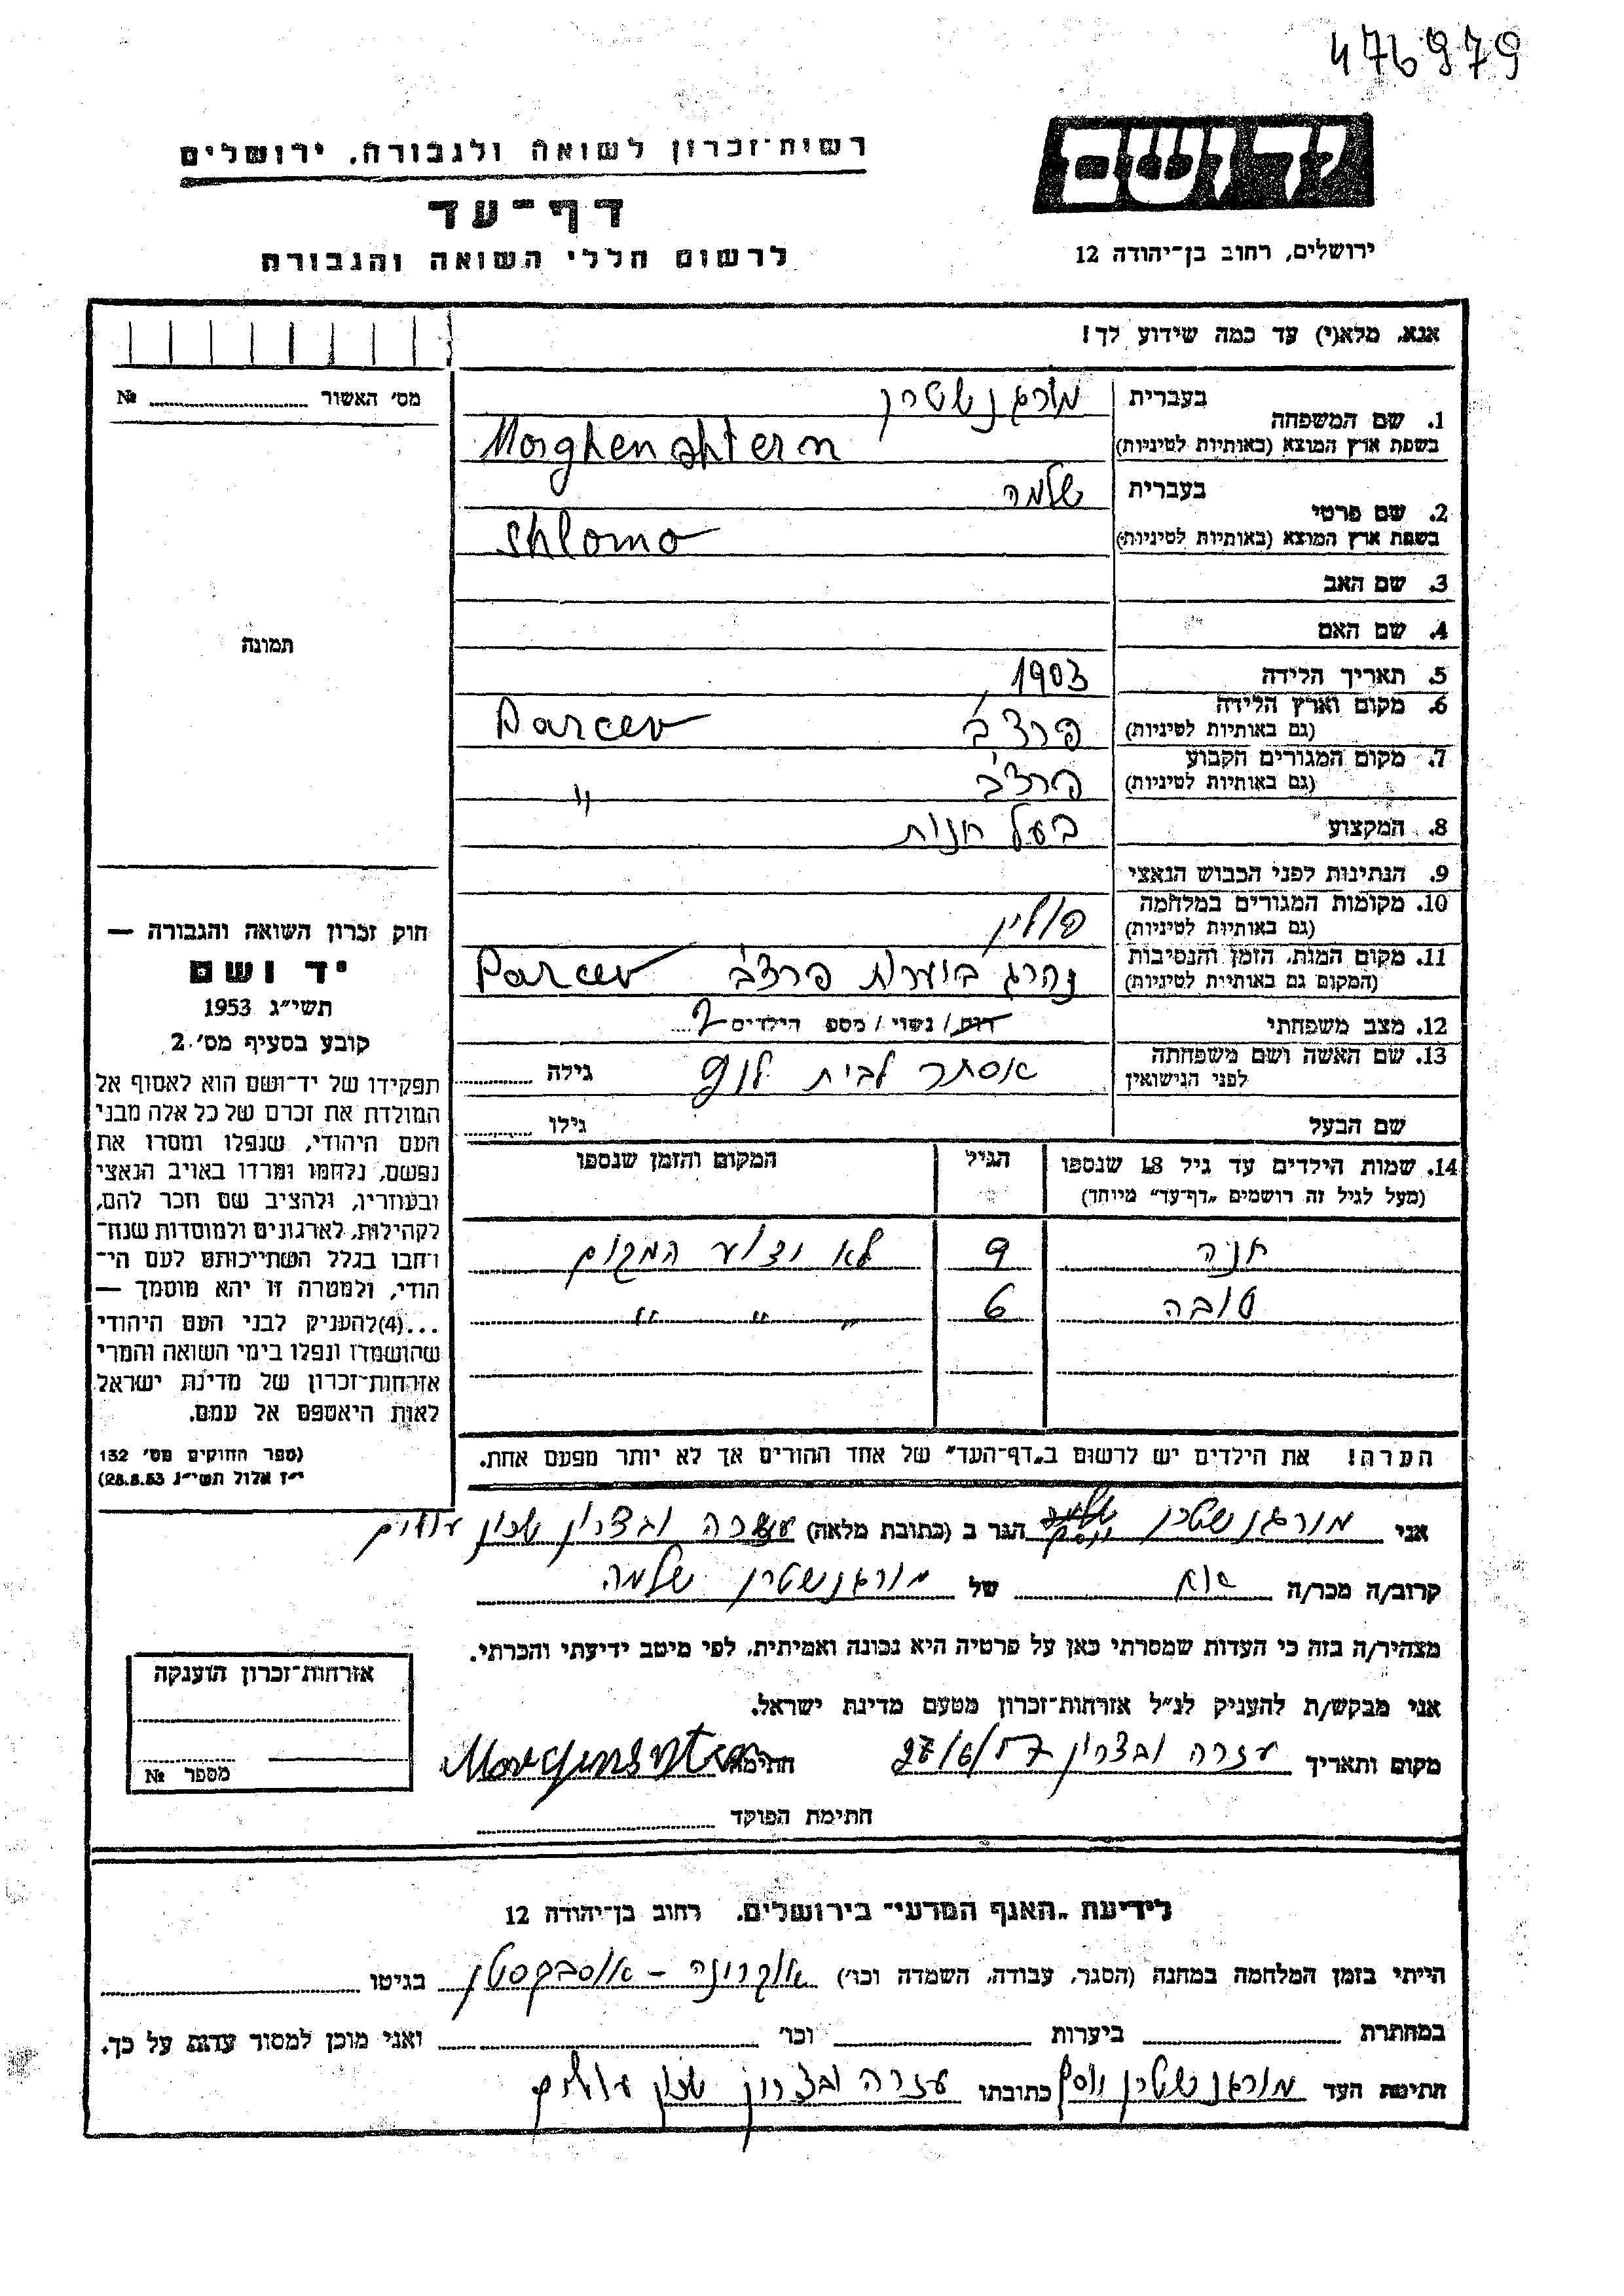 476979
רשות־זכרון לשואה ולגבורה, ירושלים
יד ושם
דף־עד
לרשום חללי השואה והגבורה
ירושלים, רחוב בן־יהודה 12
אנא, מלא(י) עד כמה שידוע לך!
מס' האשור № 
תמונה
1. שם המשפחה בעברית מורגנשטרן
בשפת ארץ המוצא (באותיות לטיניות) Morghenshtern
2. שם פרטי בעברית שלמה
בשפת ארץ המוצא (באותיות לטיניות) Shlomo
3. שם האב
4. שם האם
5. תאריך הלידה 1903
6. מקום וארץ הלידה (גם באותיות לטיניות) פרצ'ב Parcev
7. מקום המגורים הקבוע (גם באותיות לטיניות) פרצ'ב "
8. המקצוע בעל חנות
9. הנתינות לפני הכבוש הנאצי
10. מקומות המגורים במלחמה (גם באותיות לטיניות) פולין
11. מקום המות, הזמן והנסיבות (המקום גם באותיות לטיניות) נהרג ביערות פרצ'ב Parcev
12. מצב משפחתי רוק/נשוי/מספ הילדים 2
13. שם האשה ושם משפחתה לפני הנישואין אסתר לבית גילה
שם הבעל גילו
14. שמות הילדים עד גיל 18 שנספו הגיל המקום והזמן שנספו
(מעל לגיל זה רושמים „דף־עד" מיוחד)
חנה 9 לא ידוע המקום
טובה 6 " " "
הערה! את הילדים יש לרשום ב„דף־העד" של אחד ההורים אך לא יותר מפעם אחת.
חוק זכרון השואה והגבורה —
יד ושם
תשי"ג 1953
קובע בסעיף מס' 2
תפקידו של יד־ושם הוא לאסוף אל
המולדת את זכרם של כל אלה מבני
העם היהודי, שנפלו ומסרו את
נפשם, נלחמו ומרדו באויב הנאצי
ובעוזריו, ולהציב שם וזכר להם,
לקהילות, לארגונים ולמוסדות שנח־
רבו בגלל השתייכותם לעם הי־
הודי, ולמטרה זו יהא מוסמך —
...(4) להעניק לבני העם היהודי
שהושמדו ונפלו בימי השואה והמרי
אזרחות־זכרון של מדינת ישראל
לאות היאספם אל עמם.
(ספר החוקים מס' 132
י"ז אלול תשי"ג 28.8.53)
אני מורגנשטרן יוסף הגר ב (כתובת מלאה) עזרה ובצרון שכון עולים
קרוב/ה מכר/ה אח של מורגנשטרן שלמה
מצהיר/ה בזה כי העדות שמסרתי כאן על פרטיה היא נכונה ואמיתית, לפי מיטב ידיעתי והכרתי.
אני מבקש/ת להעניק לנ"ל אזרחות־זכרון מטעם מדינת ישראל.
מקום ותאריך עזרה ובצרון 27/6/57 חתימה Morgensztern
חתימת הפוקד
אזרחות־זכרון הוענקה
מספר №
לידיעת „האגף המדעי" בירושלים, רחוב בן־יהודה 12
הייתי בזמן המלחמה במחנה (הסגר, עבודה, השמדה וכו') בגיטו
במחתרת ביערות וכו' ואני מוכן למסור עדות על כך.
חתימת העד מורגנשטרן יוסף כתובתו עזרה ובצרון שכון עולים